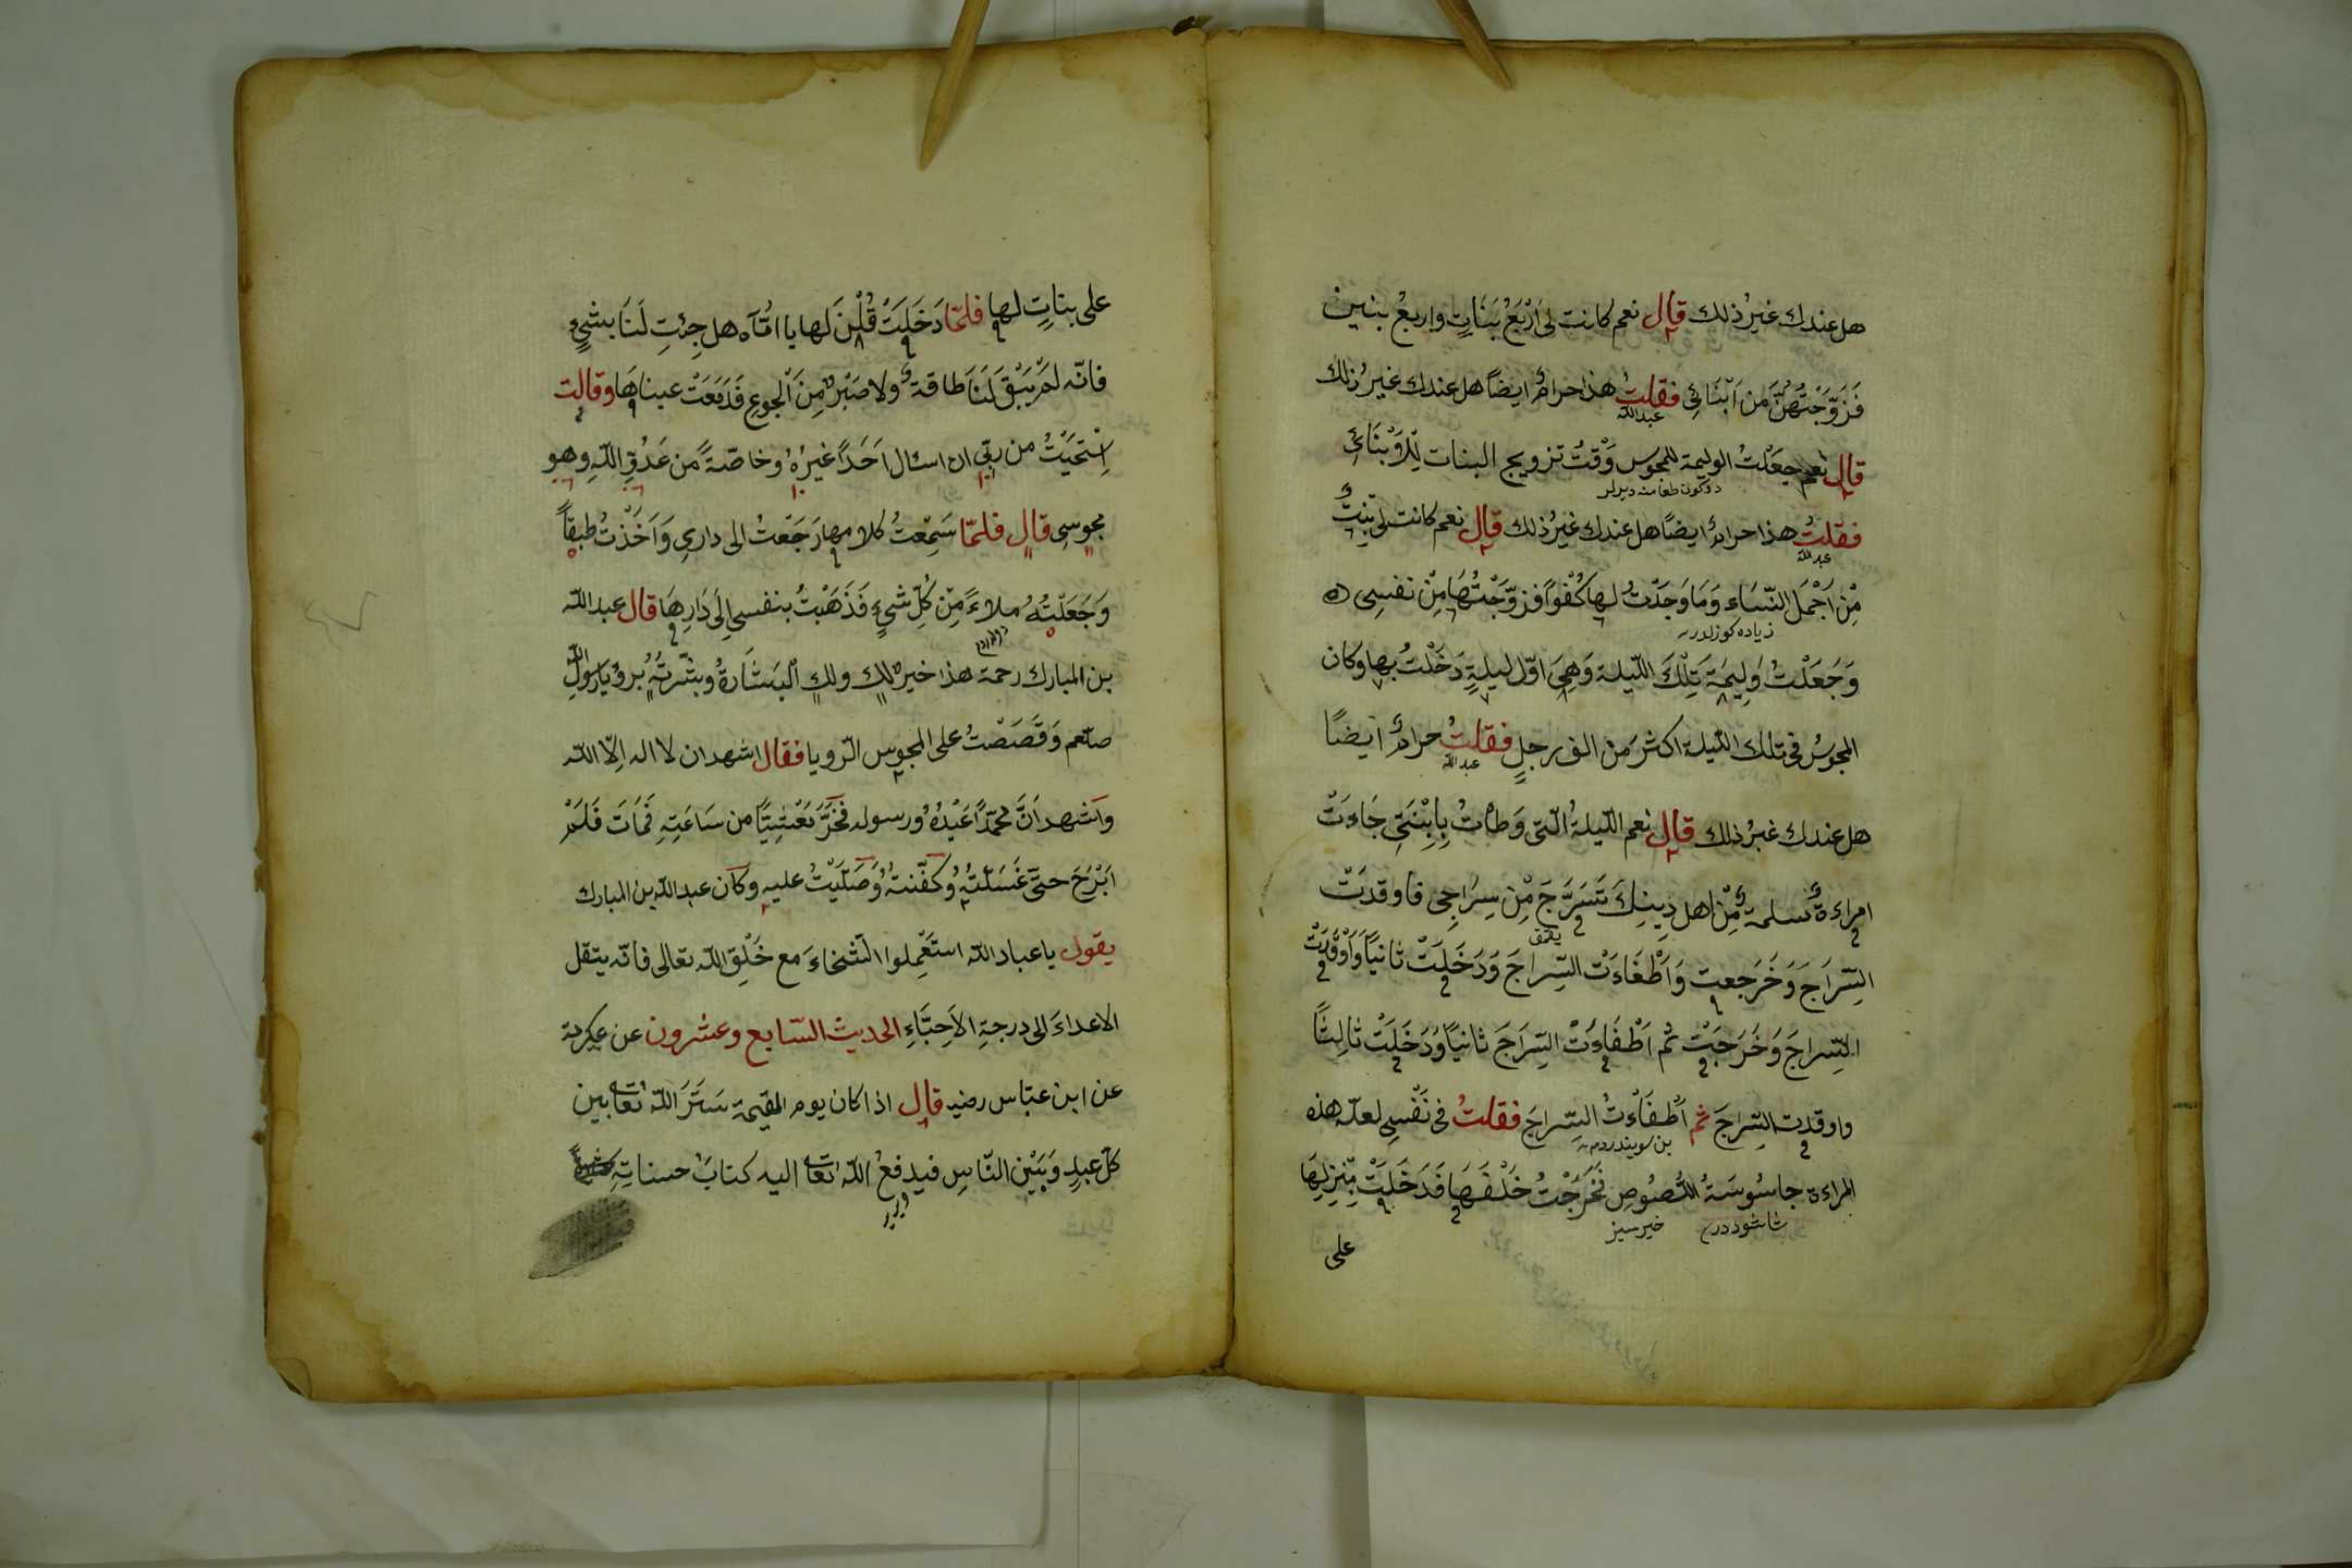 هل عندك غيرُ ذلك قال نعم كانت لى اَرْبَعُ بَنَاتٍ واربعُ بنين
فَزَوَّجْتُهُنَّ مِن اَبْنَائِى فقلتُ هذا حرامٌ ايضاً هل عندك غيرُ ذلك
عبدالله
قال نعم جعَلْتُ الوليمة للمجوس وَقْتَ تزويج البنات لِلْاَبْنَاءِ
دوكون طعامنه ديرلر
فقلتُ هذا حرامٌ ايضًا هل عندك غيرُ ذلك قال نعم كانت لى بِنْتٌ
عبدالله
مِنْ اَجْمَلِ النِّسَاء وَمَا وَجَدْتُ لها كُفْوًا فزوّجْتُهَا مِنْ نفسِى
زياده كوزلدر
وَجَعَلْتُ وَلِيمَةَ تِلْكَ اللّيلة وَهِىَ اوّل ليلةٍ دَخَلْتُ بها وكان
المجوسُ فى تلك اللّيلة اكثرَ من الف رجلٍ فقلتُ حرامٌ ايضًا
عبدالله
هل عندك غيرُ ذلك قال نعم اللّيلةُ الّتى وَطَأْتُ بِابْنَتِى جَاءَتْ
امراءةٌ مسلمةٌ مِّنْ اهل دِينِكَ تَسَرَّجَ مِنْ سِرَاجِى فاوقدَتْ
يقمق
السِّرَاجَ وَخَرَجعت وَاَطْفَاءَتْ السِّراجَ وَدَخَلَتْ ثانيًا وَاَوْقَدَتْ
السِّراجَ وَخَرَجَتْ ثم اَطْفَاءَتْ السِّرَاجَ ثانيًا وَدَخَلَتْ ثالِثًا
واوقدت السِّراجَ ثم اَطْفَاءَتْ السِّراجَ فقلتُ فى نَفْسِى لعلّ هذه
بن سويندردم
المراءة جاسُوسَةُ اللُّصُوصِ فَخَرَجْتُ خَلْفَهَا فَدَخَلَتْ مَنْزِلَهَا
شاشوددر خيرسيز
على
على بناتٍ لها فلمّا دَخَلَتْ قُلْنَ لها يا امّآه هل جِئتِ لَنَا بشىءٍ
فانّه لم يَبْقَ لَنَا طاقةٌ ولا صَبْرٌ مِنَ الْجوعِ فَدَمَعَتْ عيناهَا وقالت
اِسْتَحْيَيْتُ من ربّى ان اسئال اَحَدًا غيرَهُ وخاصّةً من عَدُوِّ اللّهِ وهو
مجوسى قال فلمّا سَمِعْتُ كلامها رَجَعْتُ الى دارى وَاَخَذْتُ طبقًا
وَجَعَلْتُهُ ملاءً مِنْ كُلِّ شىءٍ فَذَهَبْتُ بنفسى اِلَى دَارِهَا قال عبد اللّه
بن المبارك رحمة هذا خيرٌ لك ولك الْبَشَارةُ وبشّرتُهُ برؤيا رسولِ اللّه
صلعم وَقَصَصْتُ على المجوس الرّويا فقال اشهد ان لا اله اِلّا اللّه
واشهد اَنَّ محمّدًا عَبْدُهُ ورسوله فَخَرَّ مَغْشِيًّا من سَاعَتِهِ فَمَاتَ فَلَمْ
اَبْرَحْ حتّى غَسَلْتُهُ وكَفَّنتُهُ وَصَلَّيْتُ عليه وكان عبد اللّه بن المبارك
يقول يا عباد اللّه استَعْمِلوا السَّخَاءَ مع خَلْقِ اللّه تعالى فانّه ينقل
الاعداءَ الى درجةِ الاَحِبَّاءِ الحديث السّابع وعشرون عن عكرمة
عن ابن عبّاس رضيه قال اذا كان يوم القيمة سَتَرَ اللّه تعا بين
كلّ عبدٍ وَبَيْنَ النّاسِ فيدفعُ اللّه تعا اليه كتابَ حسناتِهِ
ويرير